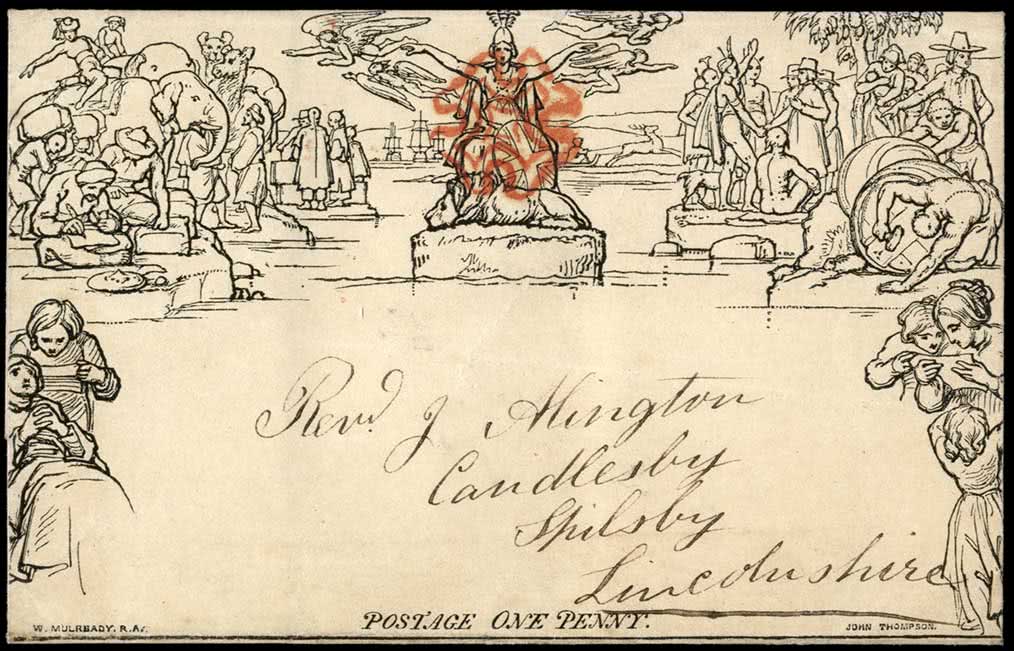 Revd. J Alington
Candlesby
Spilsby
Lincolnshire
POSTAGE ONE PENNY.
W. MULREADY. R.A.
JOHN THOMPSON.